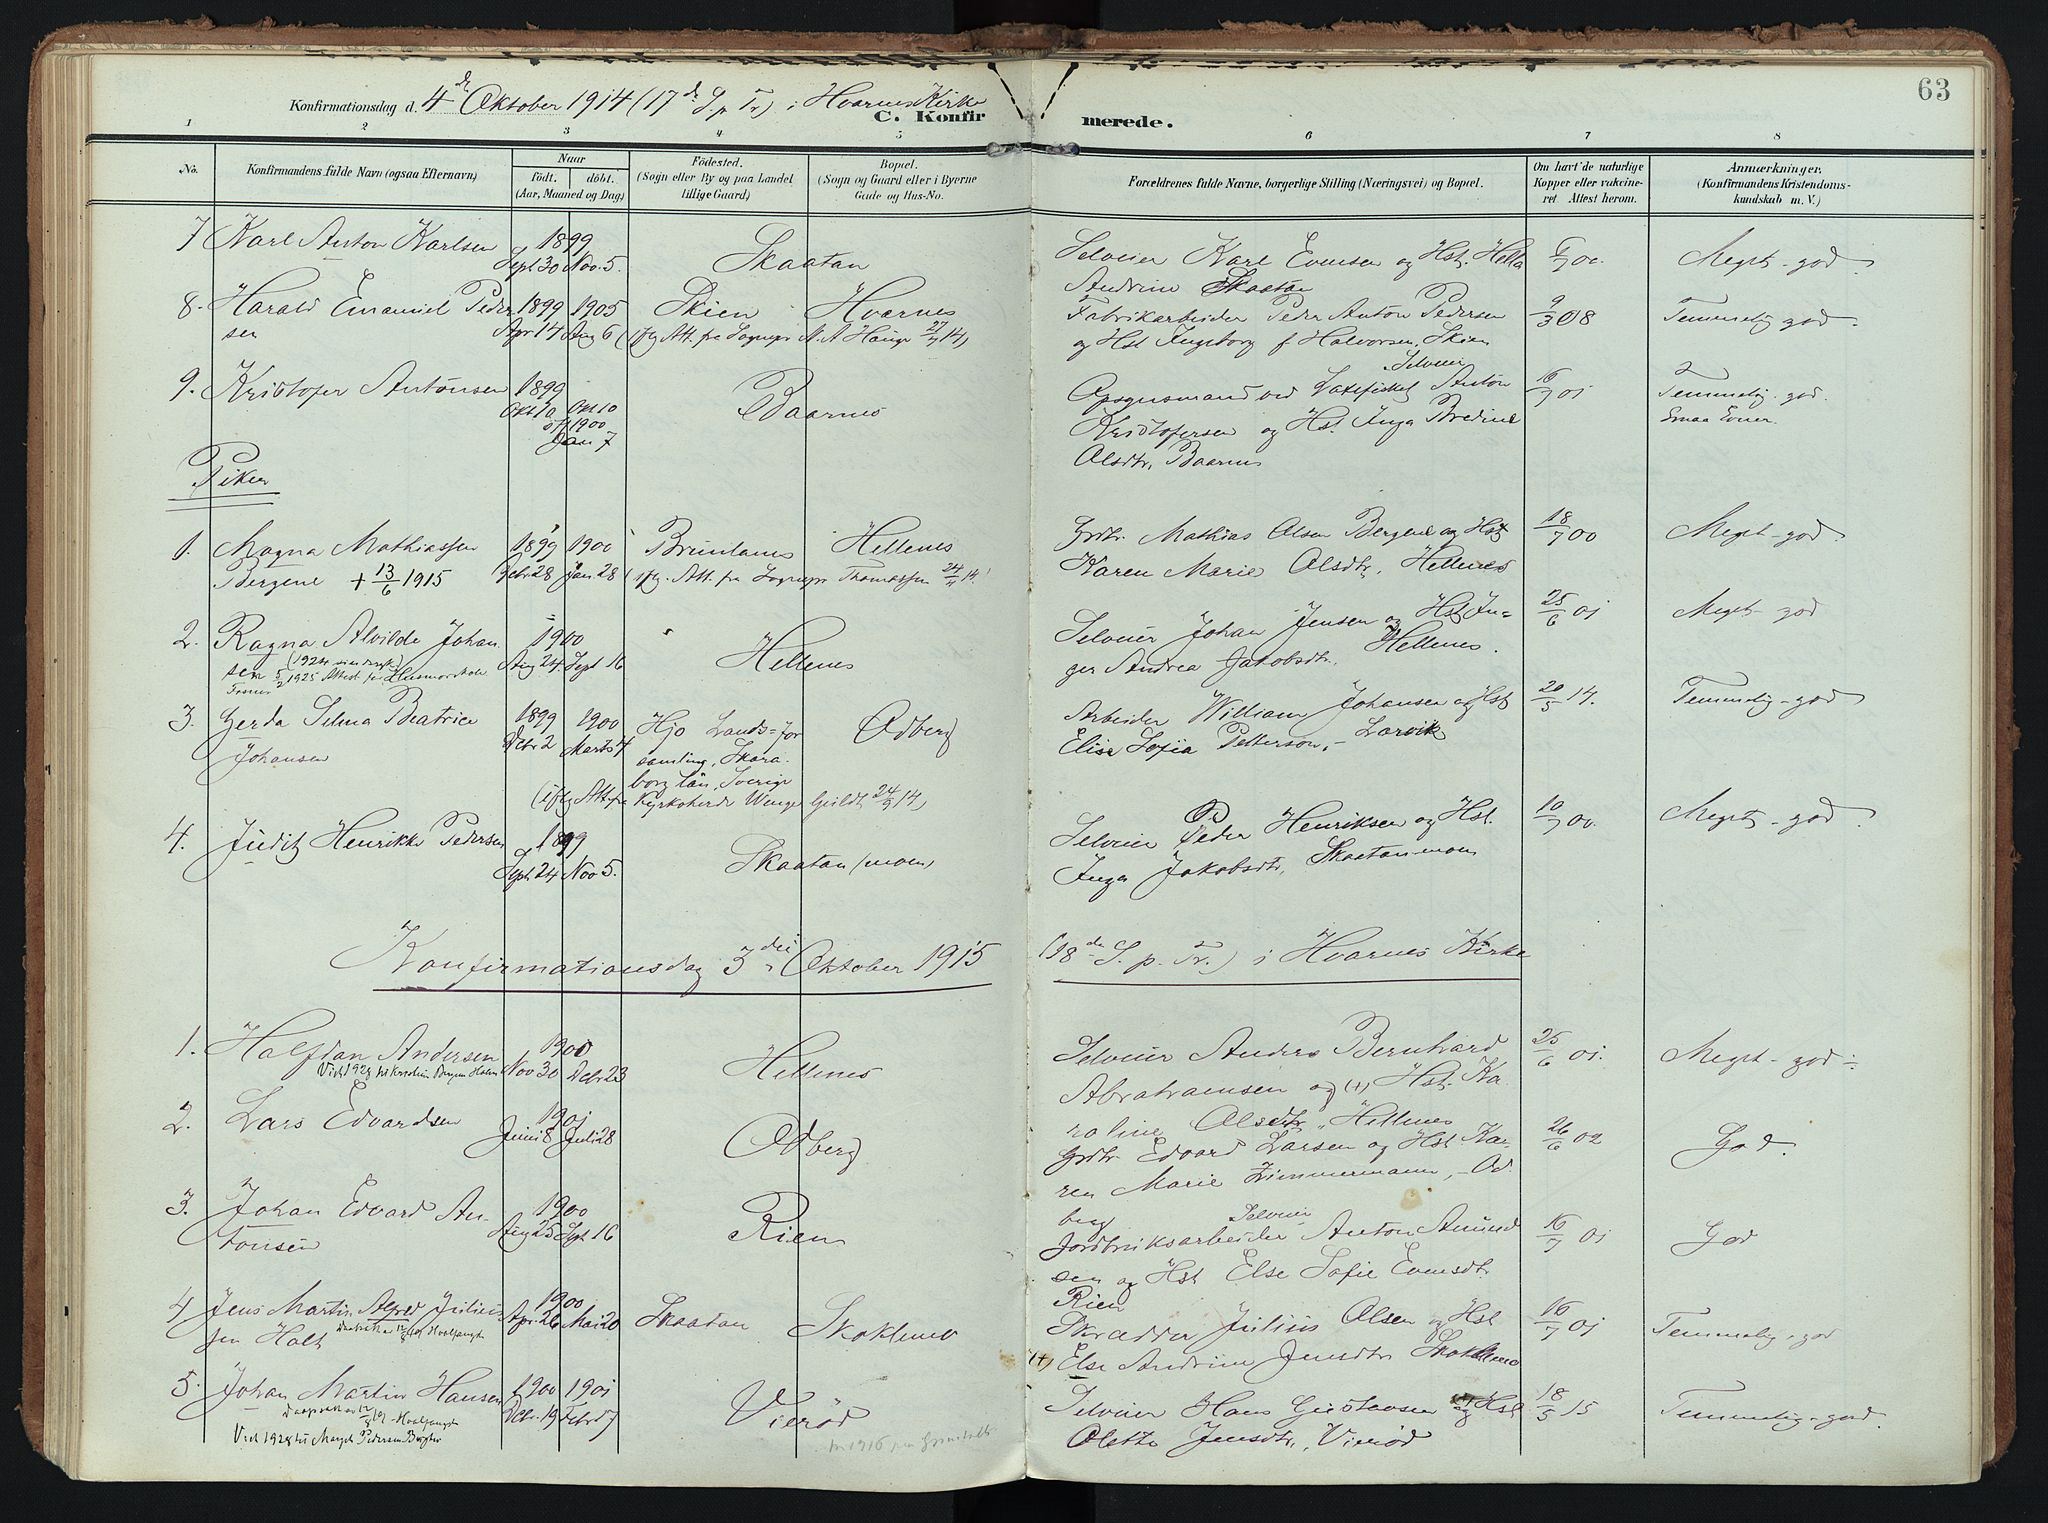 63
Konfirmationsdag d. 4de Oktober 1914 (17de S. p. Tr.) i Hvarnes Kirke
C. Konfirmerede.
1 2 3 4 5 6 7 8
No. Konfirmandens fulde Navn (ogsaa Efternavn) Naar født. døbt. (Aar, Maaned og Dag) Födested. (Sogn eller By og paa Landet tillige Gaard) Bopæl. (Sogn og Gaard eller i Byerne Gade og Hus-No.
Forældrenes fulde Navne, borgerlige Stilling (Næringsvei) og Bopæl. Om havt de naturlige Kopper eller vakcineret Attest herom. Anmærkninger. (Konfirmandens Kristendomskundskab m. V.)
7 Karl Anton Karlsen 1899 Sept. 30 Nov. 5. Skaatan
Selveier Karl Evensen og Hst. Hella Andrine Skaatan 6/7 00. Meget-god.
8. Harald Emanuel Pedersen 1899 Apr 14 1905 Aug 6 Skien Hvarnes
(iflg Att. fra Sognepr N. A Hauge 27/7 14)
Fabrikarbeider Peder Anton Pedersen og Hst Ingeborg f Halvorsen, Skien 9/3 08 Temmelig god.
9. Kristofer Antonsen 1899 Okt 10 Okt 10 1900 Jan 7 Baarnes
Opsynsmand ved Laxefisket Selveier Anton Kristofersen og Hst. Inga Bredine Olsdtr, Baarnes 16/7 01 Temmelig-god. Smaa Evner.
Piker
1. Magna Mathiassen Bergene + 13/6 1915 1899 Febr 28 1900 Jan 28 Brunlanes Hellenes
(iflg. Att. fra Sognepr Thomassen 14)
Grdbr. Mathias Olsen Bergene og Hst Karen Marie Olsdtr, Hellenes 18/7 00 Meget-god.
2. Ragna Alvilde Johansen 1900 Aug 24 Sept 16 Hellenes
5/2 1925 Attest
Selveier Johan Jensen og Hst Inger Andrea Jakobsdtr. Hellenes. 25/6 01 Meget-god
3. Gerda Selma Beatrice Johansen 1899 Decbr 2 1900 Marts 4 Hjo Landsforsamling, Skaraborg län, Sverige Odberg
(iflg Att. fra Kyrkoherde 14)
Arbeider William Johansen og Hst Elise Sofia Petterson,- Larvik 20/5 14. Temmelig-god
4. Judit Henrikke Pedersen 1899 Sept. 24 Nov 5. Skaatan (moen)
Selveier Peder Henriksen og Hst. Inga Jakobsdtr, Skaatan-moen 10/7 00 Meget-god.
Konfirmationsdag 3die Oktober 1915 (18de S. p. Tr.) i Hvarnes Kirke
1. Halfdan Andersen 1900 Nov 30 Debr 23 Hellenes
Selveier Anders Bernhard Abrahamsen og (+) Hst. Karoline Olsdtr, Hellenes 25/6 01. Meget-god
2. Lars Edvardsen 1901 Juni 8 Juli 28 Odberg
Grdbr. Edvard Larsen og Hst Karen Marie Zimmermann,- Odberg 26/6 02 God.
3. Johan Edvard Antonsen 1900 Aug 25 Sept 16 Rien
Jordbruksarbeider Selveier Anton Amundsen og Hst Else Sofie Evensdtr. Rien 16/7 01 God
4 Jens Martin Alfred Juliussen Holt 1900 Apr. 26 Mai 20 Skaatan Skoklemo
Skrædder Julius Olsen og Hst (+) Else Andrine Jensdtr Skoklemo 16/7 01 Temmelig-god
5. Johan Martin Hansen 1900 Dcbr. 19 1901 Febr 17 Vierød
Selveier Hans Gustavsen og Hst Olette Jensdtr, Vierød 18/5 15 Temmelig-god.